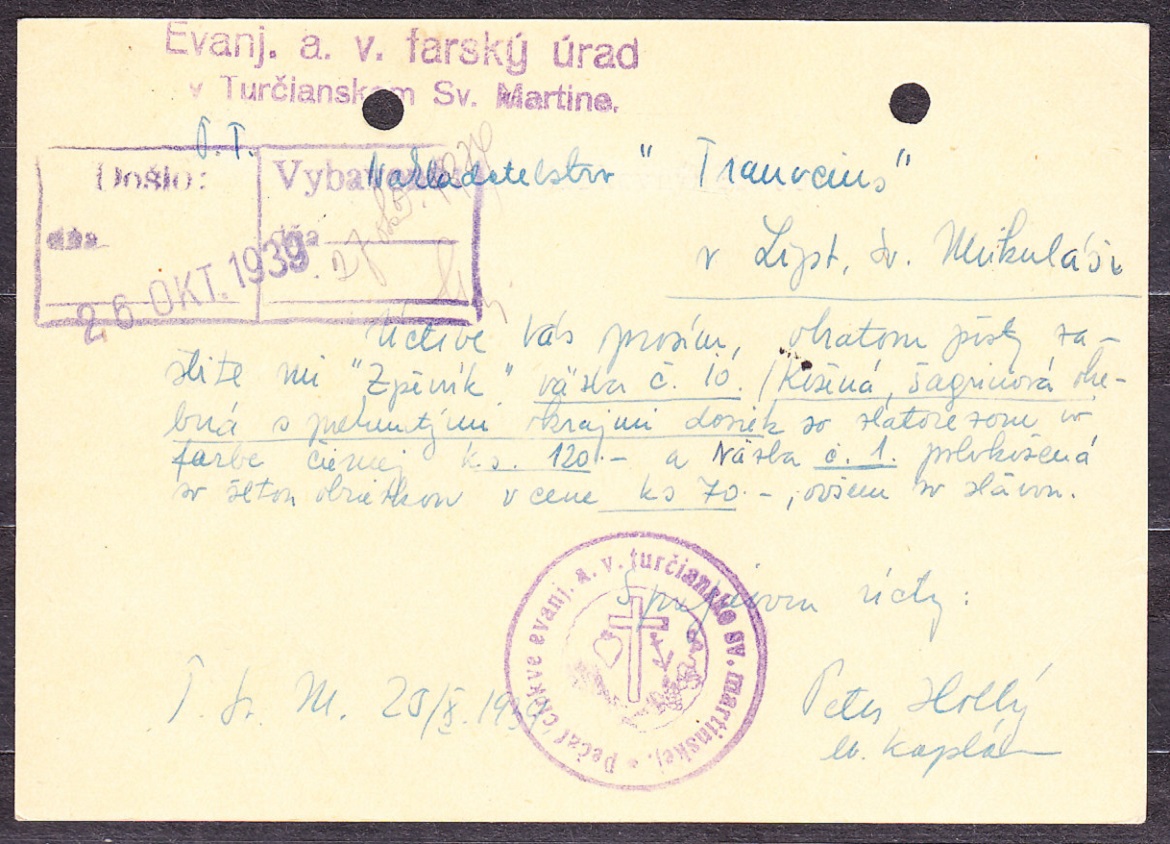 Evanj. a. v. farský úrad
v Turčianskom Sv. Martine.
P. T.
Došlo:
dňa
26 OKT. 1939
Vybavené
dňa
Nakladatelstvo "Tranoscius"
v Lipt. Sv. Mikuláši
Úctive Vás prosím, obratom pošty za-
šlite mi "Zpěvník" väzba č. 10. /Kožená, šagrinová ohe-
bná s prehnutými okrajmi dosiek so zlatorezom vo
farbe čiernej Ks. 120.- a Väzba č. 1. polokožená
so žltou obriezkou v cene Ks 70.-, ovšem so zľavou.
S prejavom úcty:
T. Sv. M. 25/X. 1939
Peter Hollý
ev. kaplán
Pečať cirkve evanj. a. v. turčiansko sv. martinskej.